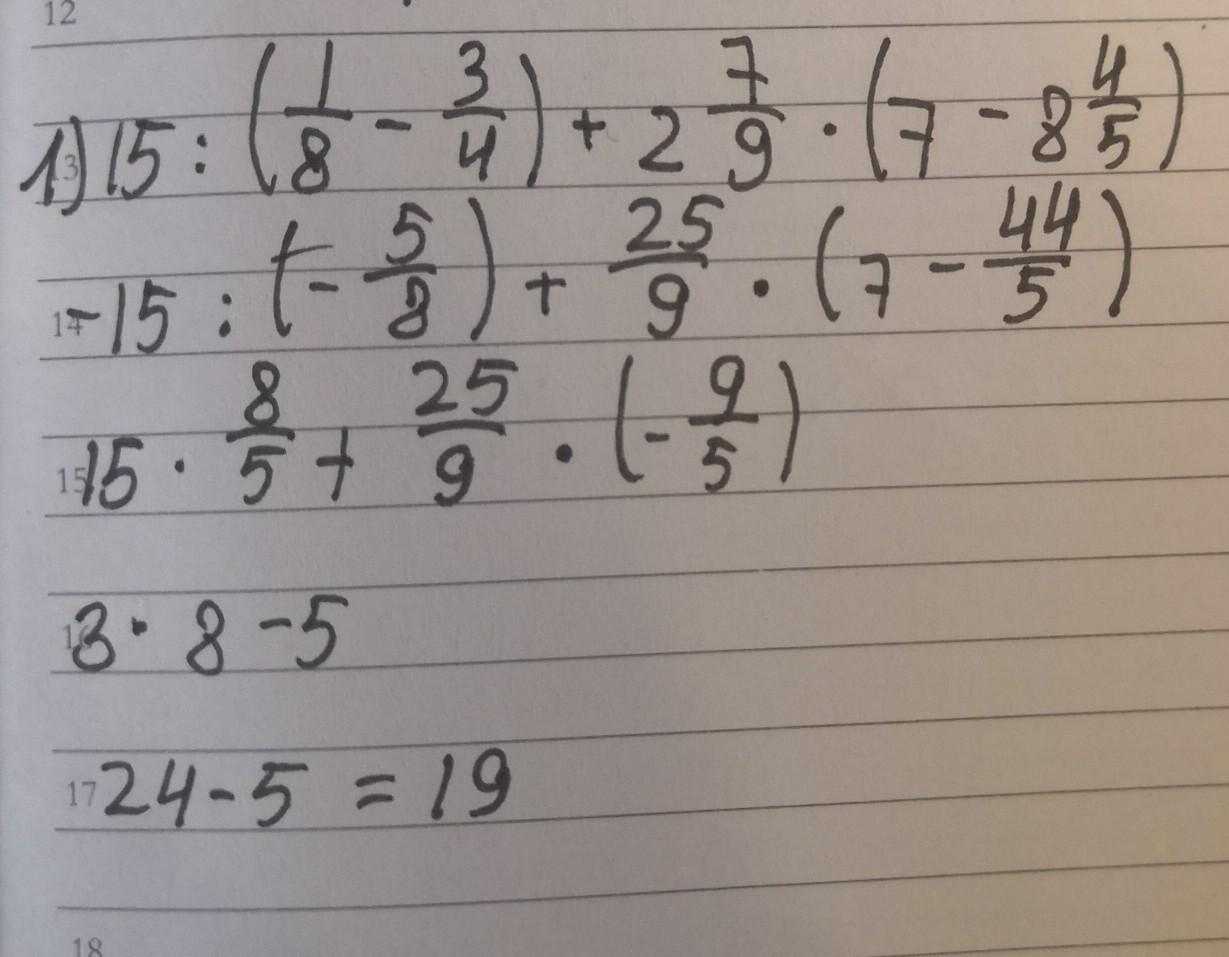 12
13 1) 15 : (1/8 - 3/4) + 2 7/9 · (7 - 8 4/5)
14 -15 : (- 5/8) + 25/9 · (7 - 44/5)
15 15 · 8/5 + 25/9 · (- 9/5)
3 · 8 - 5
17 24 - 5 = 19
18